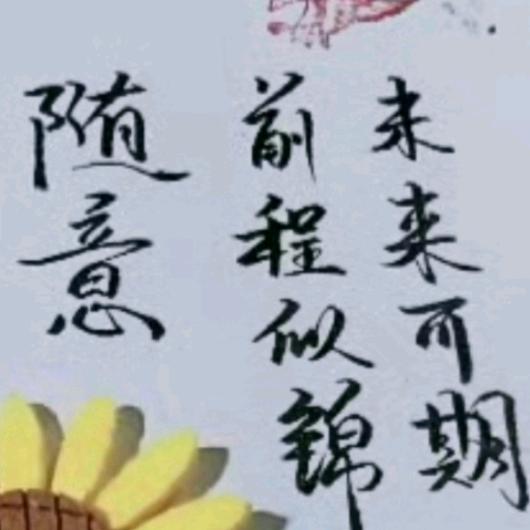 未来可期
前程似锦
随意